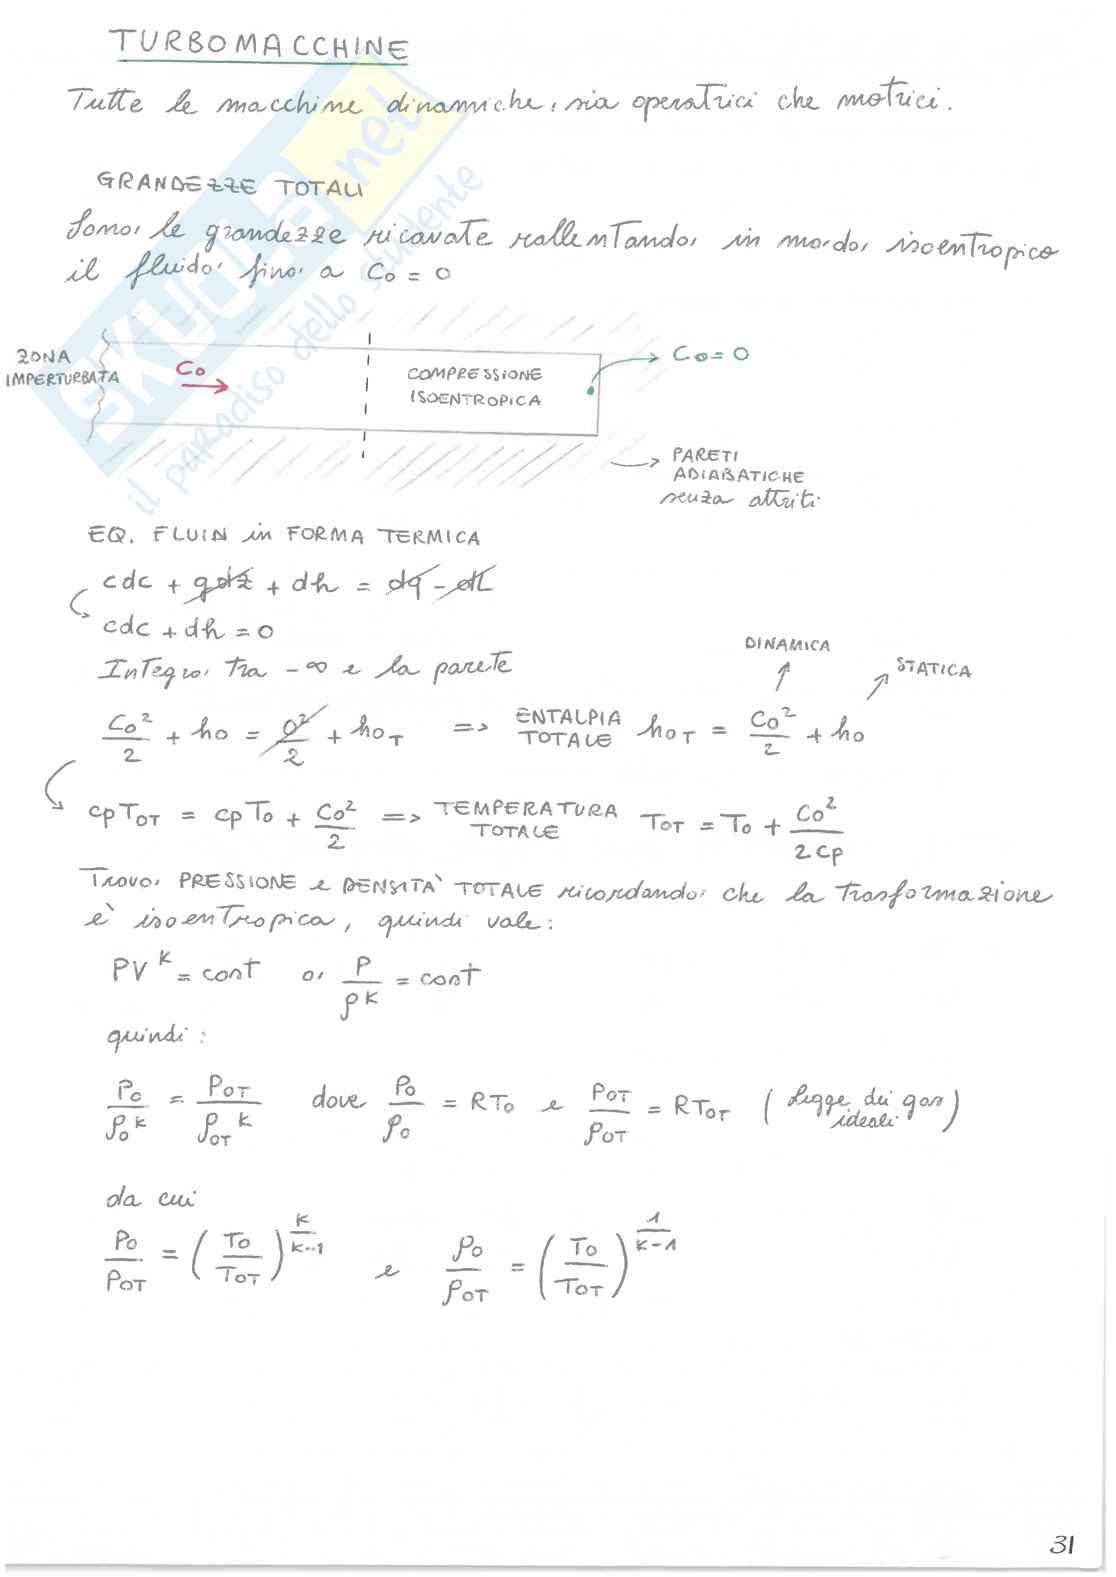 TURBOMACCHINE
Tutte le macchine dinamiche, sia operatrici che motrici.
GRANDEZZE TOTALI
Sono le grandezze ricavate rallentando in modo isoentropico
il fluido fino a C₀ = 0
ZONA
IMPERTURBATA
C₀
COMPRESSIONE
ISOENTROPICA
C₀ = 0
PARETI
ADIABATICHE
senza attriti
EQ. FLUIN in FORMA TERMICA
cdc + gdz + dh = dq - dL
cdc + dh = 0
Integro tra -∞ e la parete
C₀²/2 + h₀ = 0²/2 + h₀T => ENTALPIA TOTALE h₀T = C₀²/2 + h₀
DINAMICA
STATICA
cpT₀T = cpT₀ + C₀²/2 => TEMPERATURA TOTALE T₀T = T₀ + C₀²/2cp
Trovo PRESSIONE e DENSITÀ TOTALE ricordando che la trasformazione
è isoentropica, quindi vale:
PV^K = cost o P/ρ^K = cost
quindi:
P₀/ρ₀^K = P₀T/ρ₀T^K dove P₀/ρ₀ = RT₀ e P₀T/ρ₀T = RT₀T (Legge dei gas ideali)
da cui
P₀/P₀T = (T₀/T₀T)^(K/(K-1)) e ρ₀/ρ₀T = (T₀/T₀T)^(1/(K-1))
31
SKUOLA.net
il paradiso dello studente